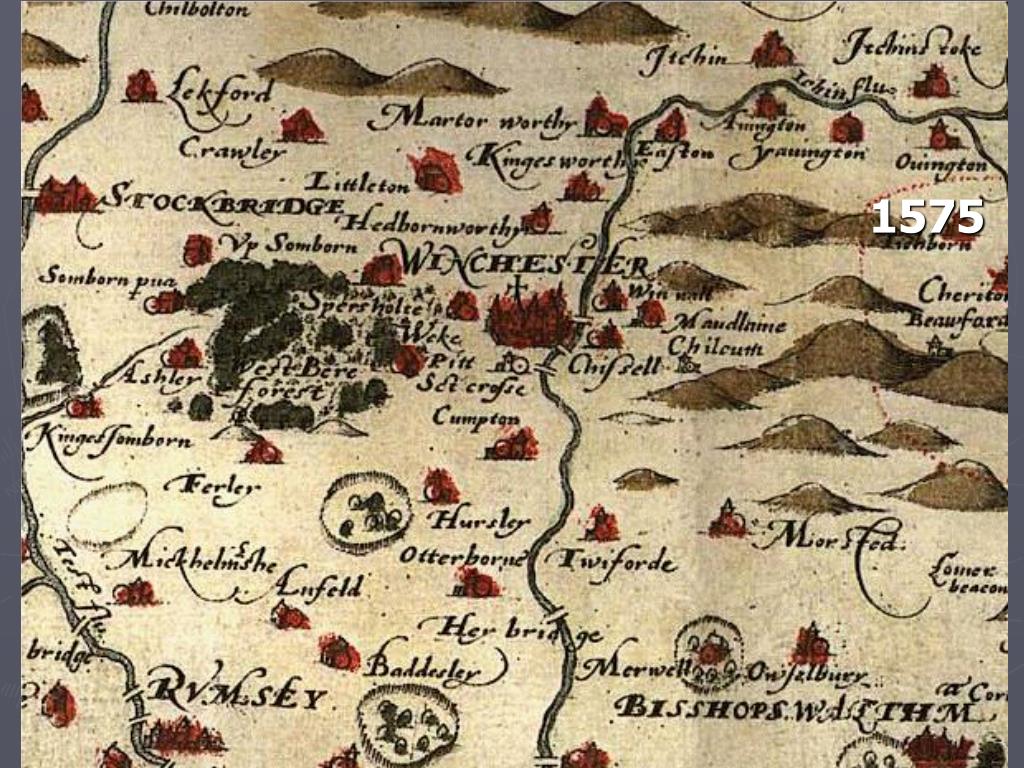 Chilbolton
Itchin
Itchinstoke
Itchin flu:
Lekford
Martor worthy
Auington
Easton
Yauington
Crawley
Kinges worthy
Ouington
Littleton
STOCKBRIDGE
1575
Hedbornworthy
Tichborn
Vp Somborn
WINCHESTER
Somborn pua
Spersholte
Win nall
Cheriton
Beawford
Maudlaine
Weke
Chilcum
Pitt
Chissell
West Bere
forest
Ashley
Sct crosse
Cumpton
Kingessomborn
Ferley
Hursley
Morsted
Test flu
Mickhelmshe
Otterborne
Twiforde
Lomer
beacon
Anfeld
Her bridge
bridge
Baddesley
Merwell
Owselbury
RVMSEY
BISSHOPS WALTHM